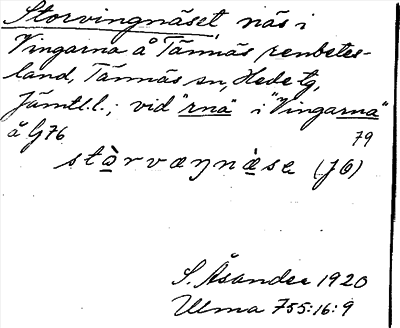 Storvingnäset, näs i
Vingarna å Tännäs renbetes-
land, Tännäs sn, Hede tg,
Jämtl.l.; vid "rna" i "Vingarna"
å G76
79
stòrvæŋnæ̀sə (JO)
S. Åsander 1920
Ulma 755:16:9